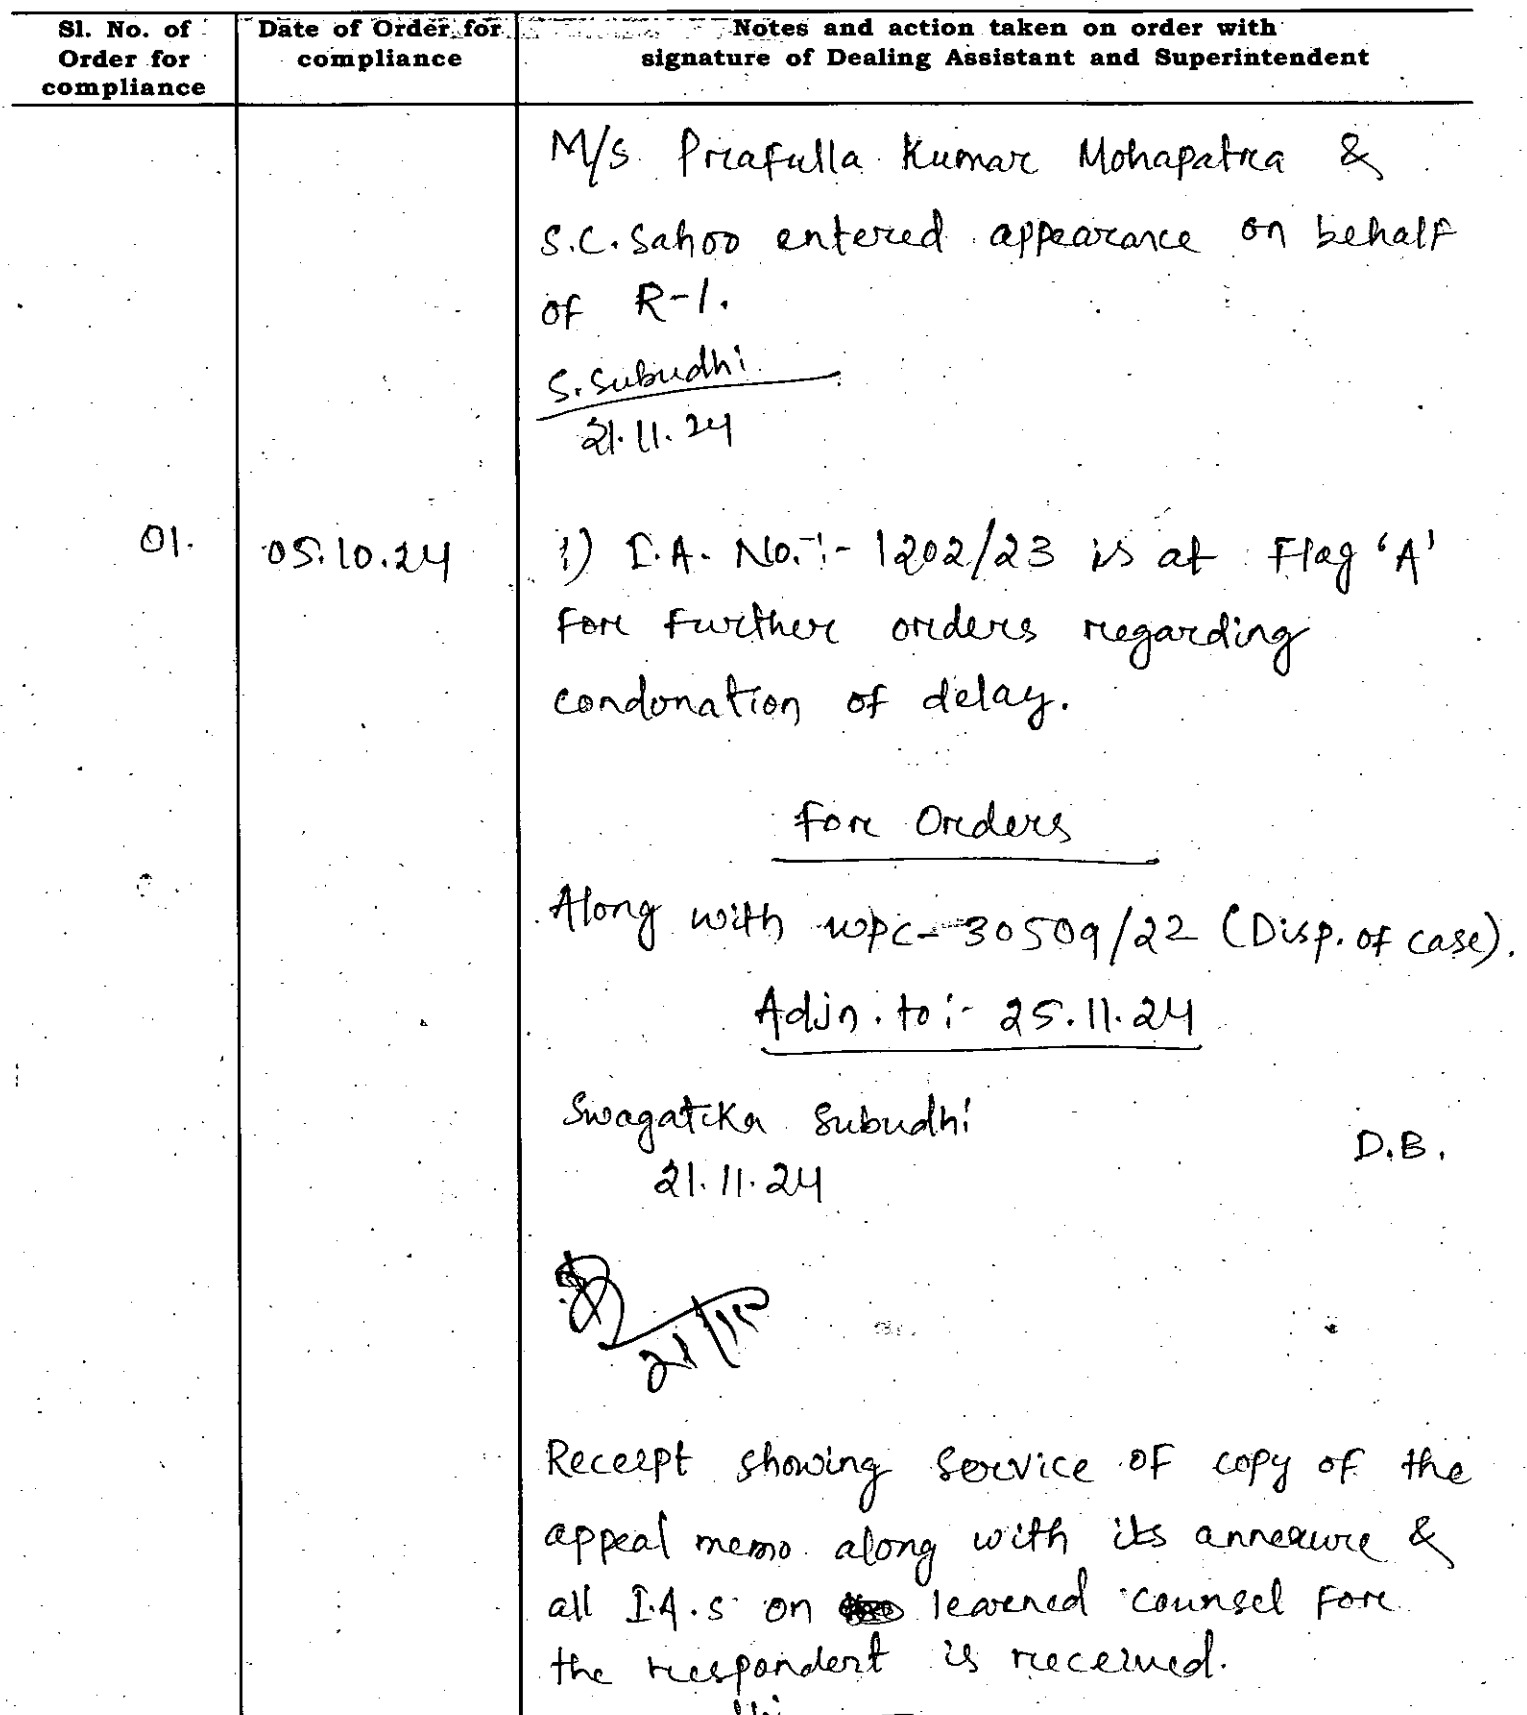 Sl. No. of Order for compliance
Date of Order for compliance
Notes and action taken on order with signature of Dealing Assistant and Superintendent
M/s. Prafulla Kumar Mohapatra &
S.C. Sahoo entered appearance on behalf
of R-1.
S. Subudhi
21.11.24
01.
05.10.24
1) I.A. No.:- 1202/23 is at Flag 'A'
For Further orders regarding
condonation of delay.
For Orders
Along with WPC-30509/22 (Disp. of case).
Adjn. to:- 25.11.24
Swagatika Subudhi
21.11.24
D.B.
21/11
Receipt showing service of copy of the
appeal memo along with its annexure &
all I.A.s on learned counsel For
the respondent is received.